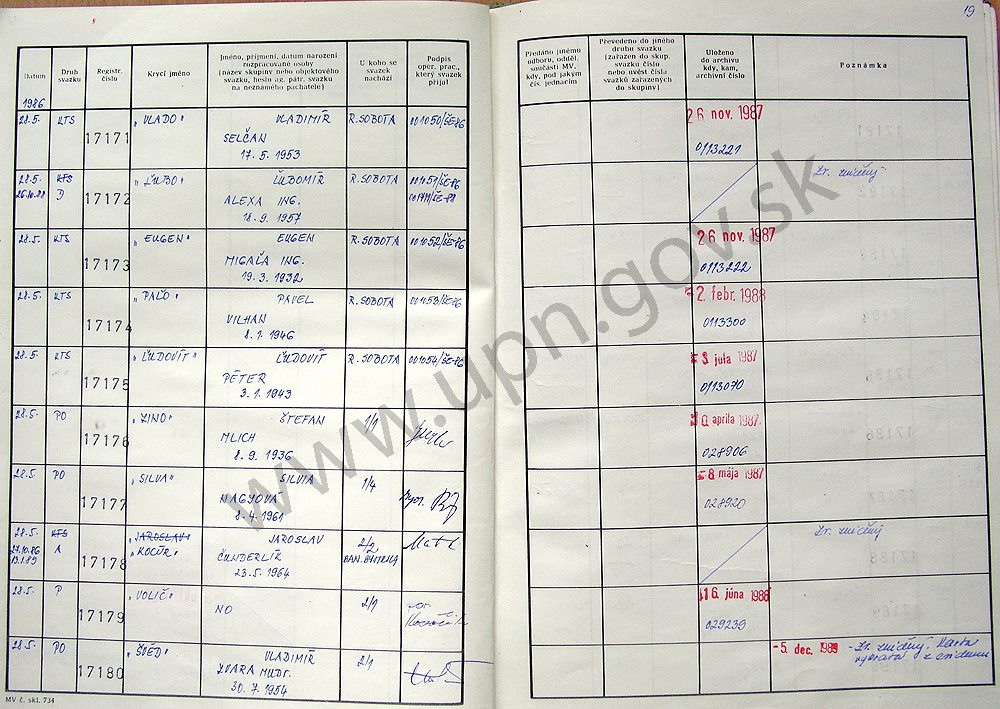 19
Datum
Druh svazku
Registr. číslo
Krycí jméno
Jméno, příjmení, datum narození
rozpracované osoby
(název skupiny nebo objektového
svazku, heslo ag. pátr. svazku
na neznámého pachatele)
U koho se svazek nachází
Podpis oper. prac., který svazek přijal
Předáno jinému
odboru, odděl.
součásti MV,
kdy, pod jakým
čís. jednacím
Převedeno do jiného
druhu svazku
(zařazen do skup.
svazku číslo
nebo uvést čísla
svazků zařazených
do skupiny)
Uloženo
do archivu
kdy, kam,
archivní číslo
Poznámka
1986
28.5. KTS 17171 "VLADO" VLADIMÍR R. SOBOTA 001050/ŠE-86
SELČAN
17. 5. 1953
26 nov. 1987
0113221
28.5. KTS 17172 "ĽUBO" ĽUBOMÍR R. SOBOTA 001051/ŠE-86
26.10.88 D ALEXA ING.
18. 9. 1957
Zv. zničený
28.5. KTS 17173 "EUGEN" EUGEN R. SOBOTA 001052/ŠE-86
MIGAĽA ING.
19. 3. 1932
26 nov. 1987
0113222
28.5. KTS 17174 "PAĽO" PAVEL R. SOBOTA 001053/ŠE-86
VILHAN
8. 1. 1946
2. febr. 1988
0113300
28.5. KTS 17175 "ĽUDOVÍT" ĽUDOVÍT R. SOBOTA 001054/ŠE-86
PÉTER
3. 1. 1943
3. júla 1987
0113070
28.5. PO 17176 "ZINO" ŠTEFAN 1/1
MLICH
8. 9. 1936
aprila 1987
028906
28.5. PO 17177 "SILVA" SILVIA 1/4
NAGYOVÁ
8. 4. 1961
8 mája 1987
028920
28.5. KTS 17178 "JAROSLAV" JAROSLAV 2/2
27.10.86 A "KOCÚR" ČUNDERLÍK BAN. BYSTRICA
13.1.89 23. 5. 1964
Zv. zničený
28.5. P 17179 "VOLIČ" NO 2/1
16. júna 1988
029239
28.5. PO 17180 "ŠVÉD" VLADIMÍR 2/1
ZVARA MUDr.
30. 7. 1954
-5. dec. 1989 - Zv. zničený. Karta
vybratá z evidencie
MV č. skl. 734
www.upn.gov.sk